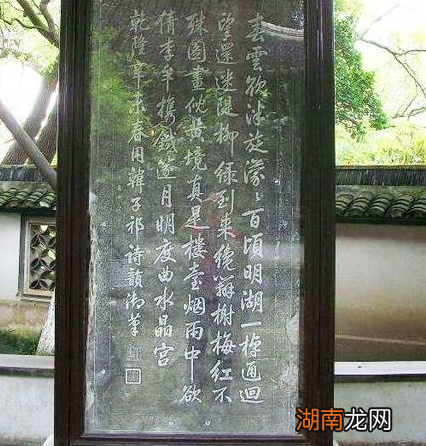 春雲欲泮旋濛濛百頃明湖一棹通迴
望還迷隄柳綠到來纔辨榭梅紅不
殊圖畫倪黃境真是樓臺烟雨中欲
倩李牟攜鐵笛月明度曲水晶宮
乾隆辛未春用韓子祁詩韻御筆
湖南龙网